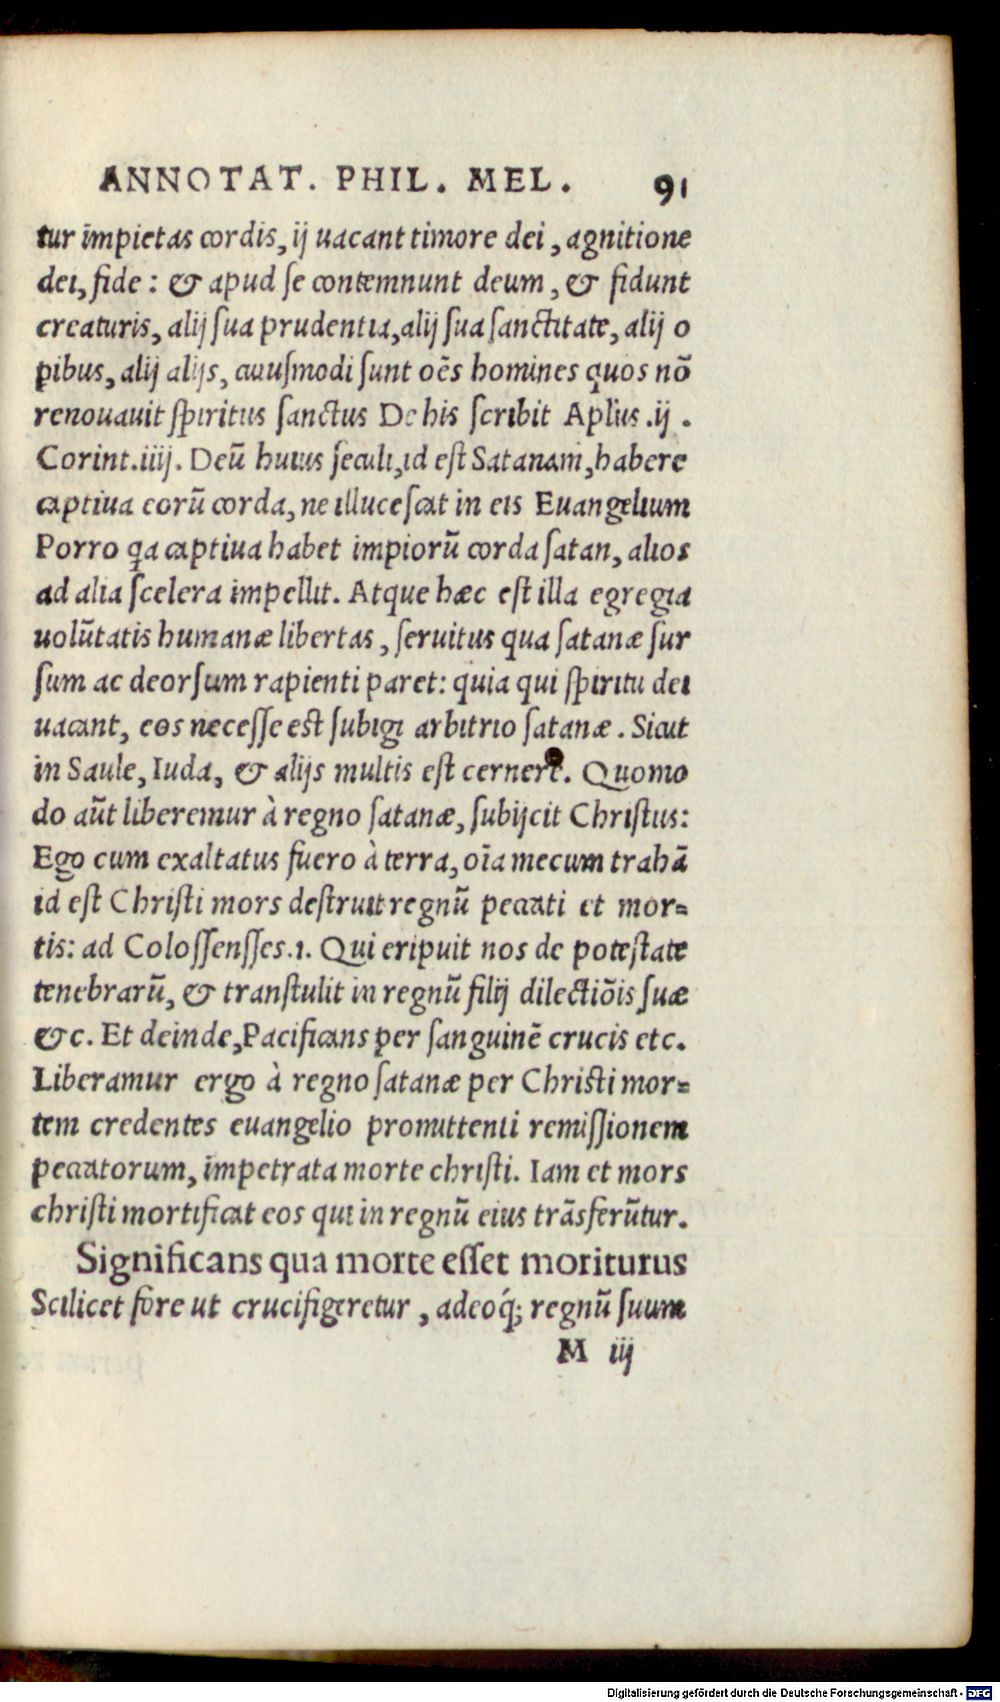 ANNOTAT. PHIL. MEL. 91
tur impietas cordis, ij uacant timore dei, agnitione
dei, fide: & apud se contemnunt deum, & fidunt
creaturis, alij sua prudentia, alij sua sanctitate, alij o
pibus, alij alijs, cuiusmodi sunt oēs homines quos nō
renouauit spiritus sanctus De his scribit Aplus .ij.
Corint.iiij. Deū huius seculi, id est Satanam, habere
captiua eorū corda, ne illucescat in eis Euangelium
Porro qa captiua habet impiorū corda satan, alios
ad alia scelera impellit. Atque hæc est illa egregia
uolūtatis humanæ libertas, seruitus qua satanæ sur
sum ac deorsum rapienti paret: quia qui spiritu dei
uacant, eos necesse est subigi arbitrio satanæ. Sicut
in Saule, Iuda, & alijs multis est cernere. Quomo
do aūt liberemur à regno satanæ, subijcit Christus:
Ego cum exaltatus fuero à terra, oīa mecum trahā
id est Christi mors destruit regnū peccati et mor=
tis: ad Colossensses.1. Qui eripuit nos de potestate
tenebrarū, & transtulit in regnū filij dilectiōis suæ
&c. Et deinde, Pacificans per sanguinē crucis etc.
Liberamur ergo à regno satanæ per Christi mor=
tem credentes euangelio promittenti remissionem
peccatorum, impetrata morte christi. Iam et mors
christi mortificat eos qui in regnū eius trāsferūtur.
Significans qua morte esset moriturus
Scilicet fore ut crucifigeretur, adeóq; regnū suum
M iij
Digitalisierung gefördert durch die Deutsche Forschungsgemeinschaft - DFG